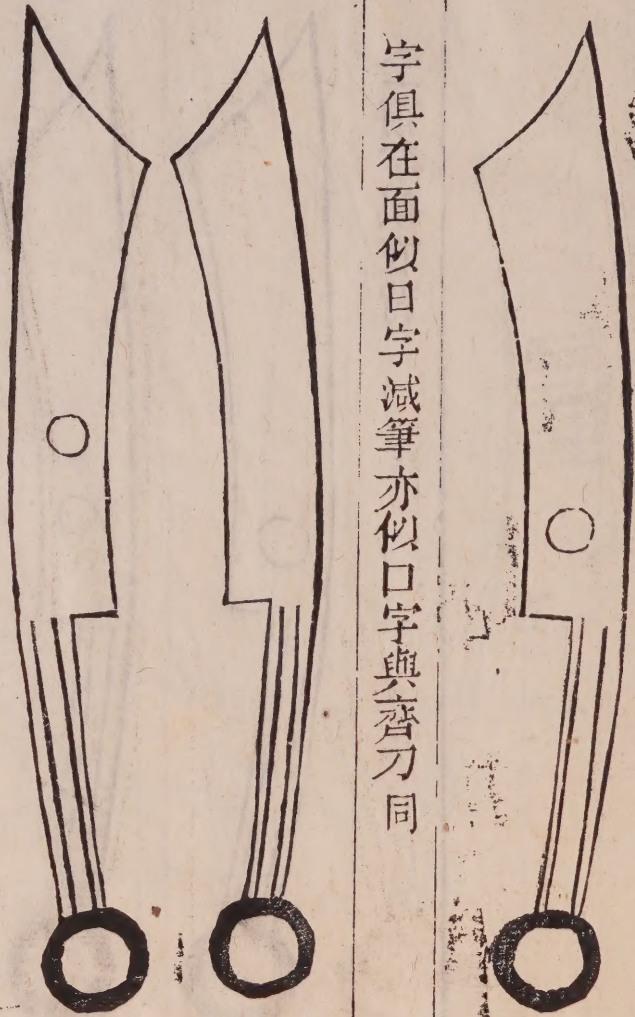 字俱在面似日字減筆亦似口字與齊刀同